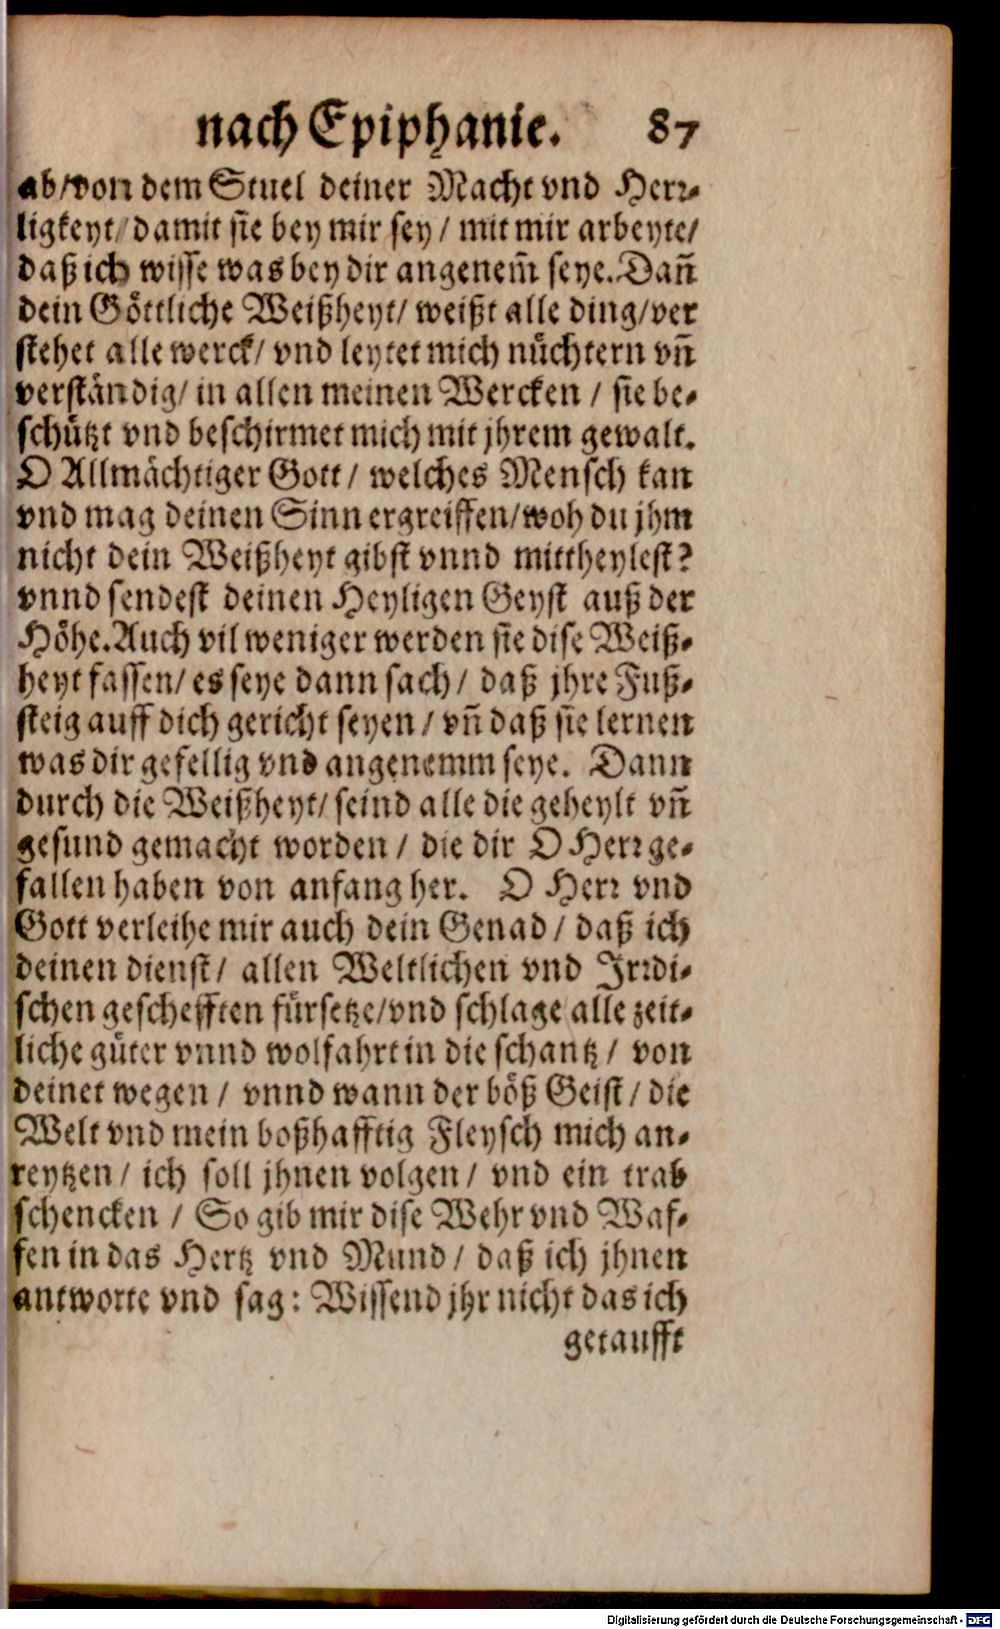 nach Epiphanie. 87
ab/von dem Stuel deiner Macht vnd Herr-
ligkeyt/damit sie bey mir sey / mit mir arbeyte/
daß ich wisse was bey dir angenem̃ seye. Dañ
dein Göttliche Weißheyt/ weißt alle ding/ver
stehet alle werck/ vnd leytet mich nüchtern vñ
verständig/ in allen meinen Wercken / sie be-
schützt vnd beschirmet mich mit jhrem gewalt.
O Allmächtiger Gott / welches Mensch kan
vnd mag deinen Sinn ergreiffen/woh du jhm
nicht dein Weißheyt gibst vnnd mittheylest?
vnnd sendest deinen Heyligen Geyst auß der
Höhe. Auch vil weniger werden sie dise Weiß-
heyt fassen/ es seye dann sach / daß jhre Fuß-
steig auff dich gericht seyen / vñ daß sie lernen
was dir gefellig vnd angenemm seye. Dann
durch die Weißheyt/ seind alle die geheylt vñ
gesund gemacht worden / die dir O Herr ge-
fallen haben von anfang her. O Herr vnd
Gott verleihe mir auch dein Genad / daß ich
deinen dienst / allen Weltlichen vnd Jrrdi-
schen geschefften fürsetze/vnd schlage alle zeit-
liche güter vnnd wolfahrt in die schantz / von
deinet wegen / vnnd wann der böß Geist / die
Welt vnd mein boßhafftig Fleysch mich an-
reytzen / ich soll jhnen volgen / vnd ein trab
schencken / So gib mir dise Wehr vnd Waf-
fen in das Hertz vnd Mund / daß ich jhnen
antworte vnd sag: Wissend jhr nicht das ich
getaufft
Digitalisierung gefördert durch die Deutsche Forschungsgemeinschaft - DFG